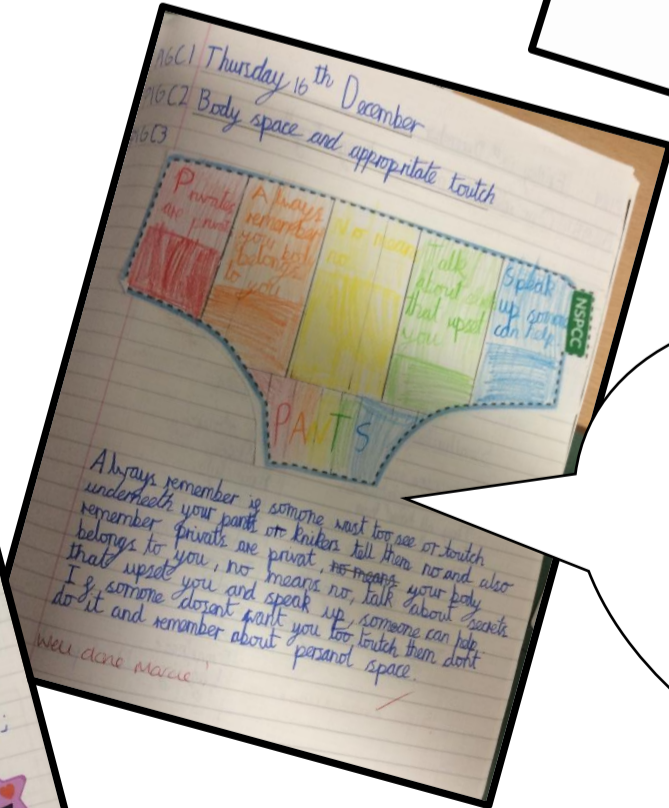 AGC1 Thursday 16th December
AGC2 Body space and appropritate toutch
AGC3
Privates are privat
Always remember your body belongs to you
No means no
Talk about that upset you
Speak up someone can help
NSPCC
PANTS
Always remember if somone want too see or toutch
underneeth your pants or kniken tell them no and also
remember privats are privat, no means your body
belongs to you, no means no, talk about secrets
that upset you and speak up, someone can help.
If, somone dosent want you too toutch them dont
do it and remember about persanol space.
Well done Marcie!